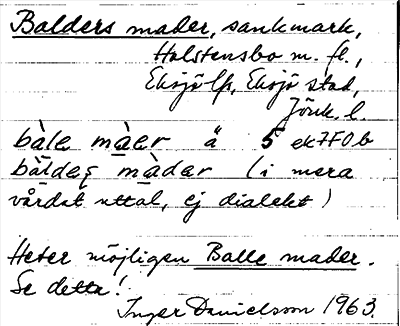 Balders mader, sankmark,
Holstensbo m. fl.,
Eksjö lfs, Eksjö stad,
Jönk. l.
bàle màer ä 5 ek7F0b
bàldeş màdar (i mera
vårdat uttal, ej dialekt)
Heter möjligen Balle mader.
Se detta!
Inger Danielsson 1963.